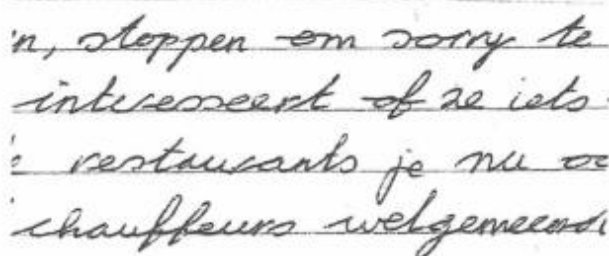 n, stoppen om sorry te
interesseert of ze iets
restaurants je nu oo
chauffeurs welgemeend